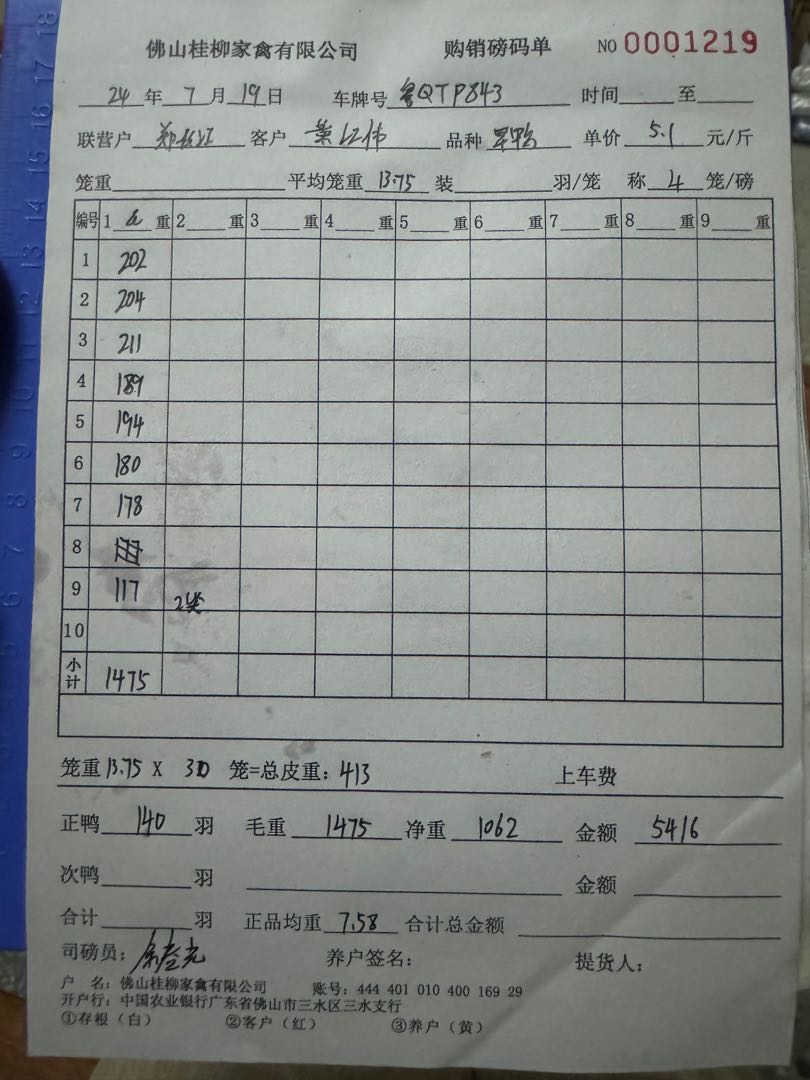 佛山桂柳家禽有限公司 购销磅码单 NO 0001219
24 年 7 月 19 日 车牌号 粤QTP843 时间 至
联营户 客户 黄江伟 品种 单价 5.1 元/斤
笼重 平均笼重 13.75 装 羽/笼 称 4 笼/磅
编号 1 重 2 重 3 重 4 重 5 重 6 重 7 重 8 重 9 重
1 202
2 204
3 211
4 189
5 194
6 180
7 178
8
9 117 2笼
10
小计 1475
笼重 13.75 X 30 笼=总皮重: 413 上车费
正鸭 140 羽 毛重 1475 净重 1062 金额 5416
次鸭 羽 金额
合计 羽 正品均重 7.58 合计总金额
司磅员: 养户签名: 提货人:
户 名: 佛山桂柳家禽有限公司 账号: 444 401 010 400 169 29
开户行: 中国农业银行广东省佛山市三水区三水支行
①存根(白) ②客户(红) ③养户(黄)